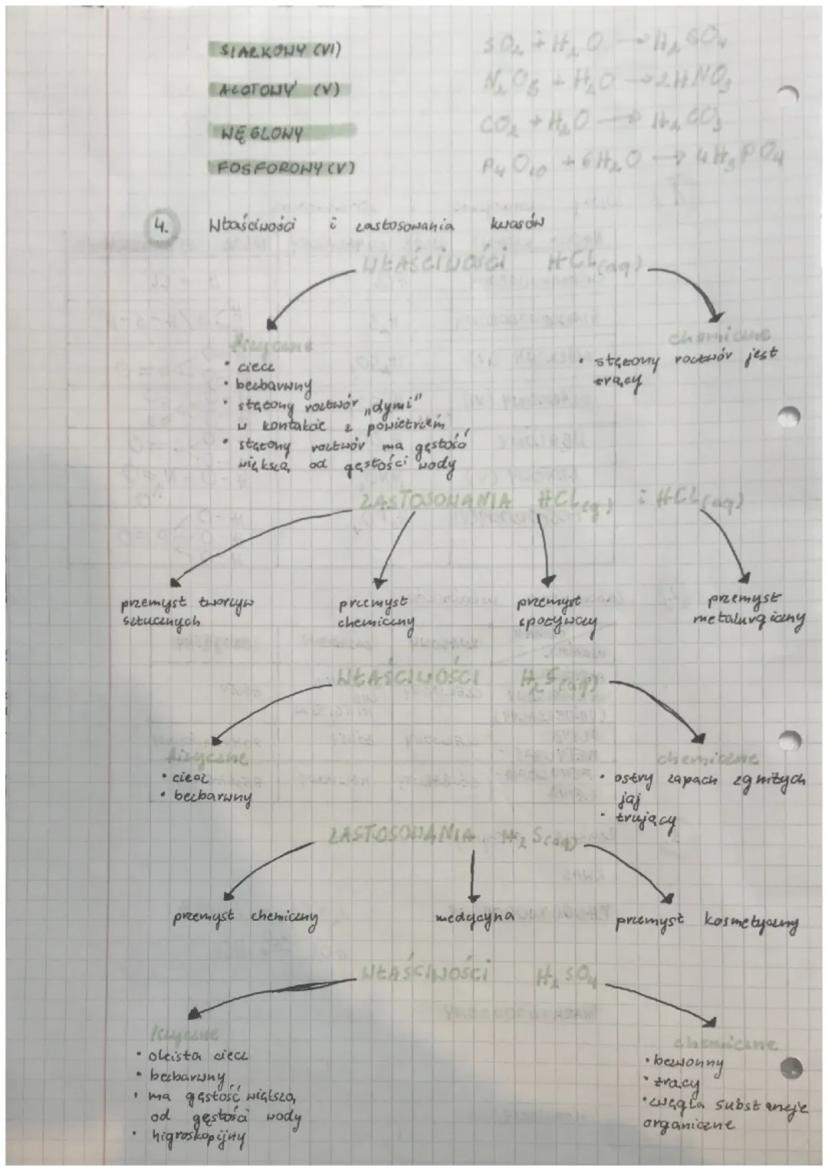 SIARKOWY (VI) SO₂ + H₂O → H₂SO₄
AZOTOWY (V) N₂O₅ + H₂O → 2HNO₃
WĘGLOWY CO₂ + H₂O → H₂CO₃
FOSFOROWY (V) P₄O₁₀ + 6H₂O → 4H₃PO₄
4. Właściwości i zastosowania kwasów
WŁAŚCIWOŚCI HCL(aq)
fizyczne chemiczne
• ciecz
• bezbarwny
• stężony roztwór „dymi"
w kontakcie z powietrzem
• stężony roztwór ma gęstość
większą od gęstości wody
• stężony roztwór jest
żrący
ZASTOSOWANIA HCL(g) i HCL(aq)
przemysł tworzyw
sztucznych
przemysł
chemiczny
przemysł
spożywczy
przemysł
metalurgiczny
WŁAŚCIWOŚCI H₂S(aq)
fizyczne
• ciecz
• bezbarwny
chemiczne
• ostry zapach zgniłych
jaj
• trujący
ZASTOSOWANIA H₂S(aq)
przemysł chemiczny
medycyna
przemysł kosmetyczny
WŁAŚCIWOŚCI H₂SO₄
fizyczne
• oleista ciecz
• bezbarwny
• ma gęstość większą
od gęstości wody
• higroskopijny
chemiczne
• bezwonny
• żrący
• zwęgla substancje
organiczne